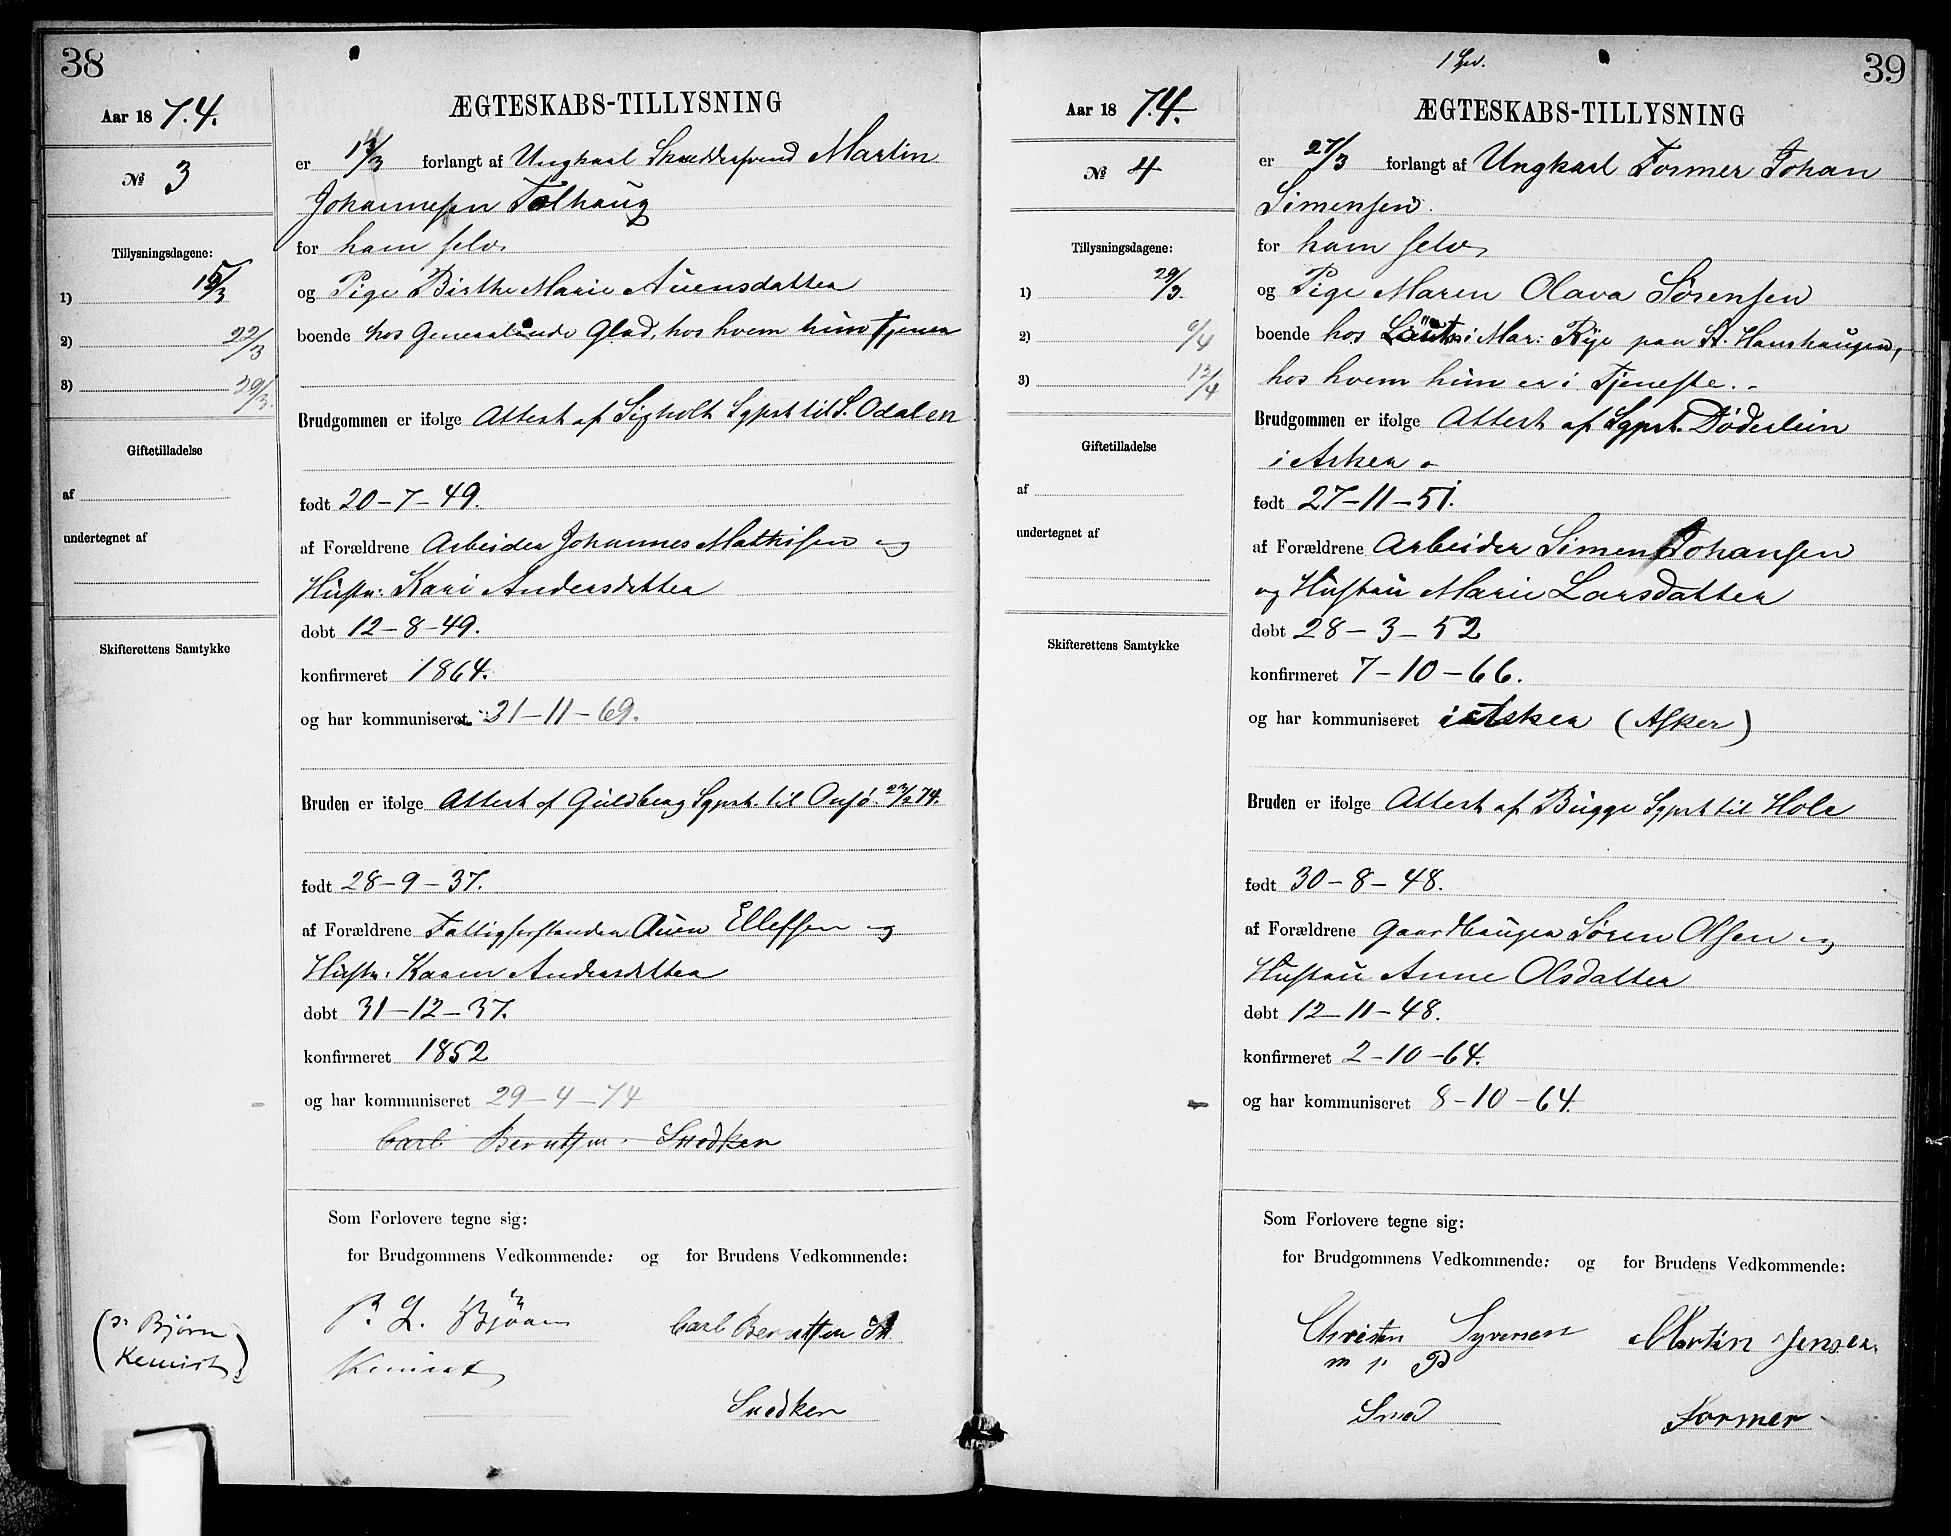 38
Aar 1874.
№ 3
Tillysningsdagene:
1) 15/3
2) 22/3
3) 29/3.
Giftetilladelse
af
undertegnet af
Skifterettens Samtykke
(: Bjørn
Kemist :)
ÆGTESKABS-TILLYSNING
er forlangt af Ungkarl Skræddersvend Martin
Johannesen Tolhaug
for ham selv
og Pige Birthe Marie Auensdatter
boende hos Generalinde Glad, hos hvem hun tjener
Brudgommen er ifølge Attest af Sigholt Sgprt til S. Odalen
født 20-7-49.
af Forældrene Arbeider Johannes Mathisen og
Hustr: Kari Andersdatter
døbt 12-8-49.
konfirmeret 1864.
og har kommuniseret 21-11-69.
Bruden er ifølge Attest af Guldberg Sgprst. til Onsø. 23/2 74.
født 28-9-37.
af Forældrene Fattigforstander Auen Ellefsen og
Hustr. Karen Andersdatter
døbt 31-12-37.
konfirmeret 1852
og har kommuniseret 29-4-74
Carl Berntsen Snedker
Som Forlovere tegne sig:
for Brudgommens Vedkommende: og for Brudens Vedkommende:
P. L. Bjørn Carl Berntsen
Kemist
Snedker
39
Aar 1874.
№ 4
Tillysningsdagene:
1) 29/3.
2) 6/4
3) 12/4
Giftetilladelse
af
undertegnet af
Skifterettens Samtykke
ÆGTESKABS-TILLYSNING
er 27/3 forlangt af Ungkarl Former Johan
Simensen
for ham selv
og Pige Maren Olava Sørensen
boende hos Løitn: i Mar: Rye paa St. Hanshaugen,
hos hvem hun er i Tjeneste.
Brudgommen er ifølge Attest af Sgprst. Døderlein
i Asker
født 27-11-51.
af Forældrene Arbeider Simen Johansen
og Hustru Marie Larsdatter
døbt 28-3-52
konfirmeret 7-10-66.
og har kommuniseret i Asker (Asker)
Bruden er ifølge Attest af Bugge Sgprst til Hole
født 30-8-48.
af Forældrene Gaardbruger Søren Olsen og
Hustru Anne Olsdatter
døbt 12-11-48.
konfirmeret 2-10-64.
og har kommuniseret 8-10-64.
Som Forlovere tegne sig:
for Brudgommens Vedkommende: og for Brudens Vedkommende:
Christen Syversen Martin Jensen
m p P
Smed Former